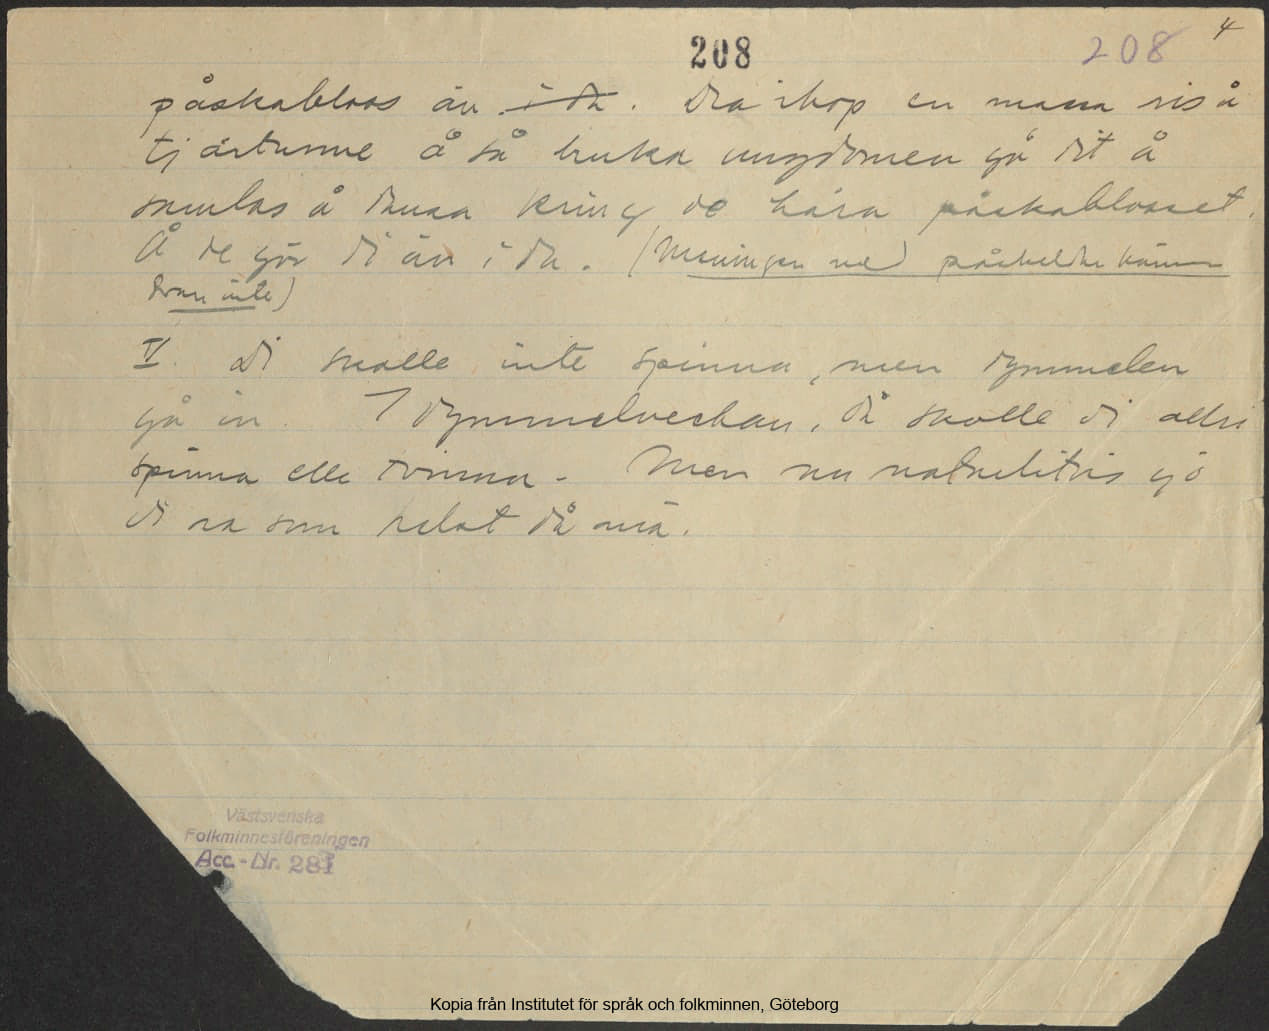 4
208 208
påskabloss än i da. Dra ihop en massa ris å
tjärtunne å så bruka ungdomen gå dit å
samlas å dansa kring de hära påskablosset.
Å de gör di än i da. (Meningen med påskeldar känner
man inte)
V. Di skolle inte spinna, men dymmelen
gå in. I dymmelveckan, då skolle di aldri
spinna elle tvinna. Men nu naturlitvis gö
di va som helst då mä.
Västsvenska
Folkminnesföreningen
Acc.-Nr. 281
Kopia från Institutet för språk och folkminnen, Göteborg